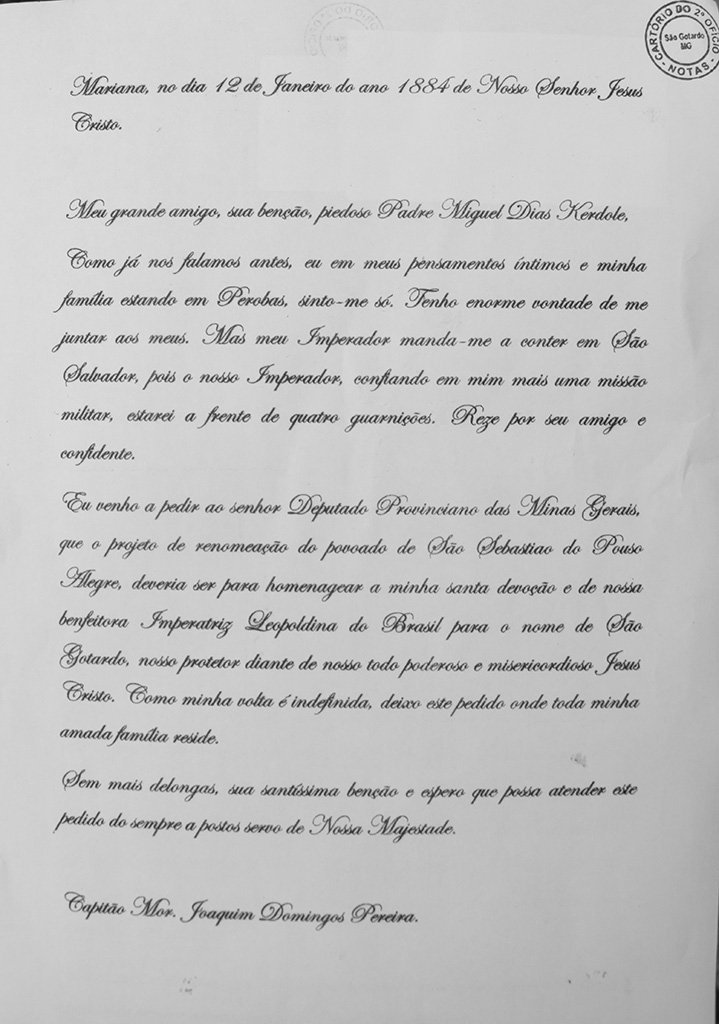 CARTÓRIO DO 2º OFÍCIO
São Gotardo
MG
NOTAS
Mariana, no dia 12 de Janeiro do ano 1884 de Nosso Senhor Jesus
Cristo.
Meu grande amigo, sua benção, piedoso Padre Miguel Dias Kerdole,
Como já nos falamos antes, eu em meus pensamentos íntimos e minha
família estando em Perobas, sinto-me só. Tenho enorme vontade de me
juntar aos meus. Mas meu Imperador manda-me a conter em São
Salvador, pois o nosso Imperador, confiando em mim mais uma missão
militar, estarei a frente de quatro guarnições. Reze por seu amigo e
confidente.
Eu venho a pedir ao senhor Deputado Provinciano das Minas Gerais,
que o projeto de renomeação do povoado de São Sebastiao do Pouso
Alegre, deveria ser para homenagear a minha santa devoção e de nossa
benfeitora Imperatriz Leopoldina do Brasil para o nome de São
Gotardo, nosso protetor diante de nosso todo poderoso e misericordioso Jesus
Cristo. Como minha volta é indefinida, deixo este pedido onde toda minha
amada família reside.
Sem mais delongas, sua santíssima benção e espero que possa atender este
pedido do sempre a postos servo de Nossa Majestade.
Capitão Mor. Joaquim Domingos Pereira.